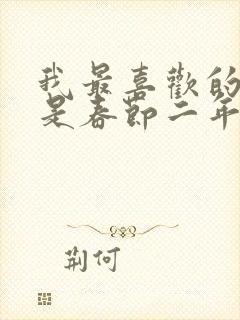 我最喜歡的
是春節二年
荆何